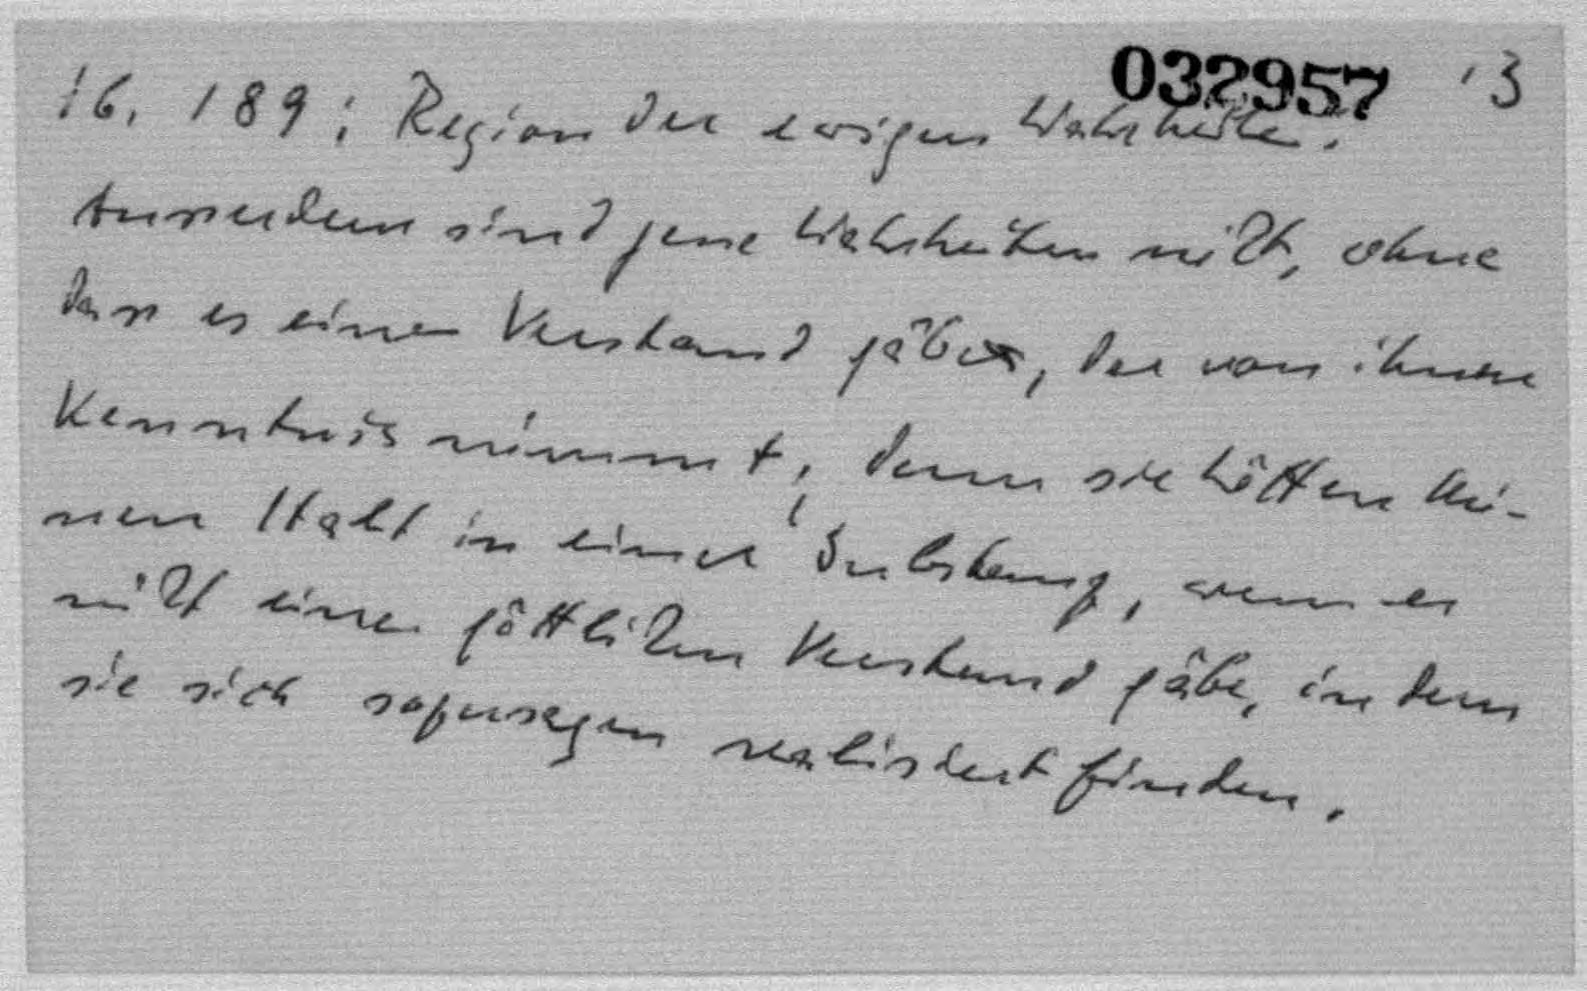 032957 13
16. 189: Region der ewigen Wahrheiten.
Ausserdem sind jene Wahrheiten nicht, ohne
dass es einen Verstand gäbe, der von ihnen
Kenntnis nimmt; denn sie hätten kei-
nen Halt in einer
nicht einen göttlichen Verstand gäbe, in dem
sie sich sozusagen realisiert finden.